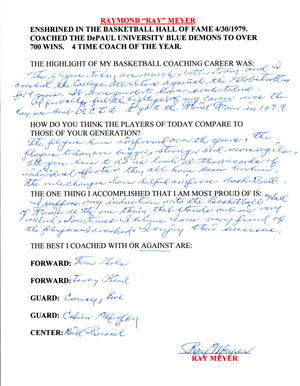 RAYMOND "RAY" MEYER
ENSHRINED IN THE BASKETBALL HALL OF FAME 4/30/1979.
COACHED THE DePAUL UNIVERSITY BLUE DEMONS TO OVER
700 WINS. 4 TIME COACH OF THE YEAR.
THE HIGHLIGHT OF MY BASKETBALL COACHING CAREER WAS:
The players today are much better today and I
coached the College All Stars against the Globetrotters
for years. It was
the highlight of my career was the
1979
HOW DO YOU THINK THE PLAYERS OF TODAY COMPARE
TO THOSE OF YOUR GENERATION?
The players have improved over the years. The
players are bigger, stronger and more agile,
all you have to do is look at the records of
individual efforts. They all have been broken.
the
THE ONE THING I ACCOMPLISHED THAT I AM MOST PROUD OF IS:
I suppose my induction into the Basketball Hall
of Fame is the one thing that stands out in my
mind. I am very proud of
the players I coached. I enjoy their success.
THE BEST I COACHED WITH OR AGAINST ARE:
FORWARD: Tom Gola
FORWARD: Larry Bird
GUARD: Cousy, Bob
GUARD: Calvin Murphy
CENTER: Bill Russell
Ray Meyer
RAY MEYER